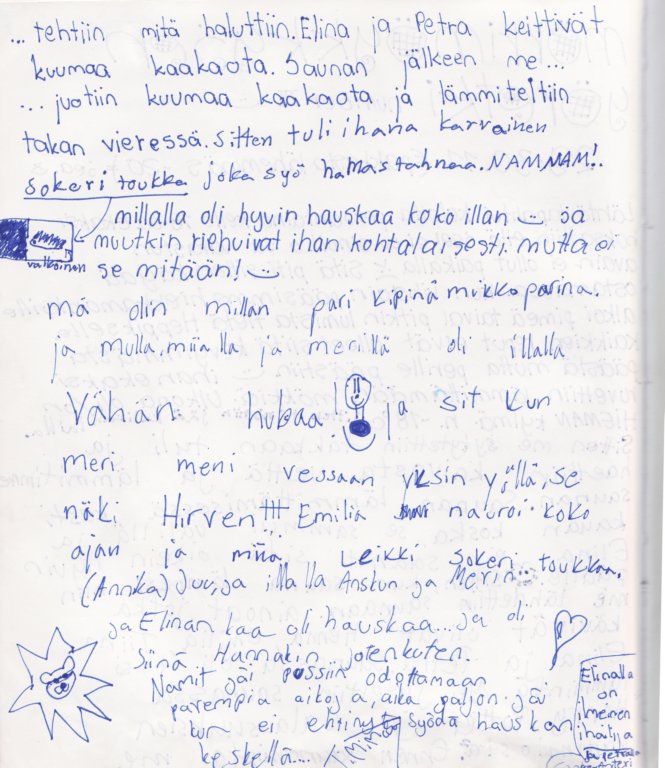 ... tehtiin mitä haluttiin. Elina ja Petra keittivät
kuumaa kaakaota. Saunan jälkeen me...
... juotiin kuumaa kaakaota ja lämmiteltiin
takan vieressä. Sitten tuli ihana karvainen
sokeri toukka joka syö hamastahnaa. NAMMAM!.
millalla oli hyvin hauskaa koko illan ja
valkoinen
muutkin riehuivat ihan kohtalaisesti, mutta ei
se mitään!
mä olin millan pari kipinä mikkoparina.
ja mulla, miialla ja merillä oli illalla
Vähän hubaa! ja sit kun
meri meni vessaan yksin yöllä, se
näki Hirven!!! Emilia nauroi koko
ajan ja miia Leikki sokeri toukkaa.
(Annika) Juu, ja illalla Anskun ja Merin
ja Elinan kaa oli hauskaa... ja oli
siinä Hannakin jotenkuten.
Namit jäi pussiin odottamaan
parempia aikoja, aika paljon jäi
kun ei ehtinyt syödä hauskan
keskellä...
Elinalla
on
ilmeinen
ihailija